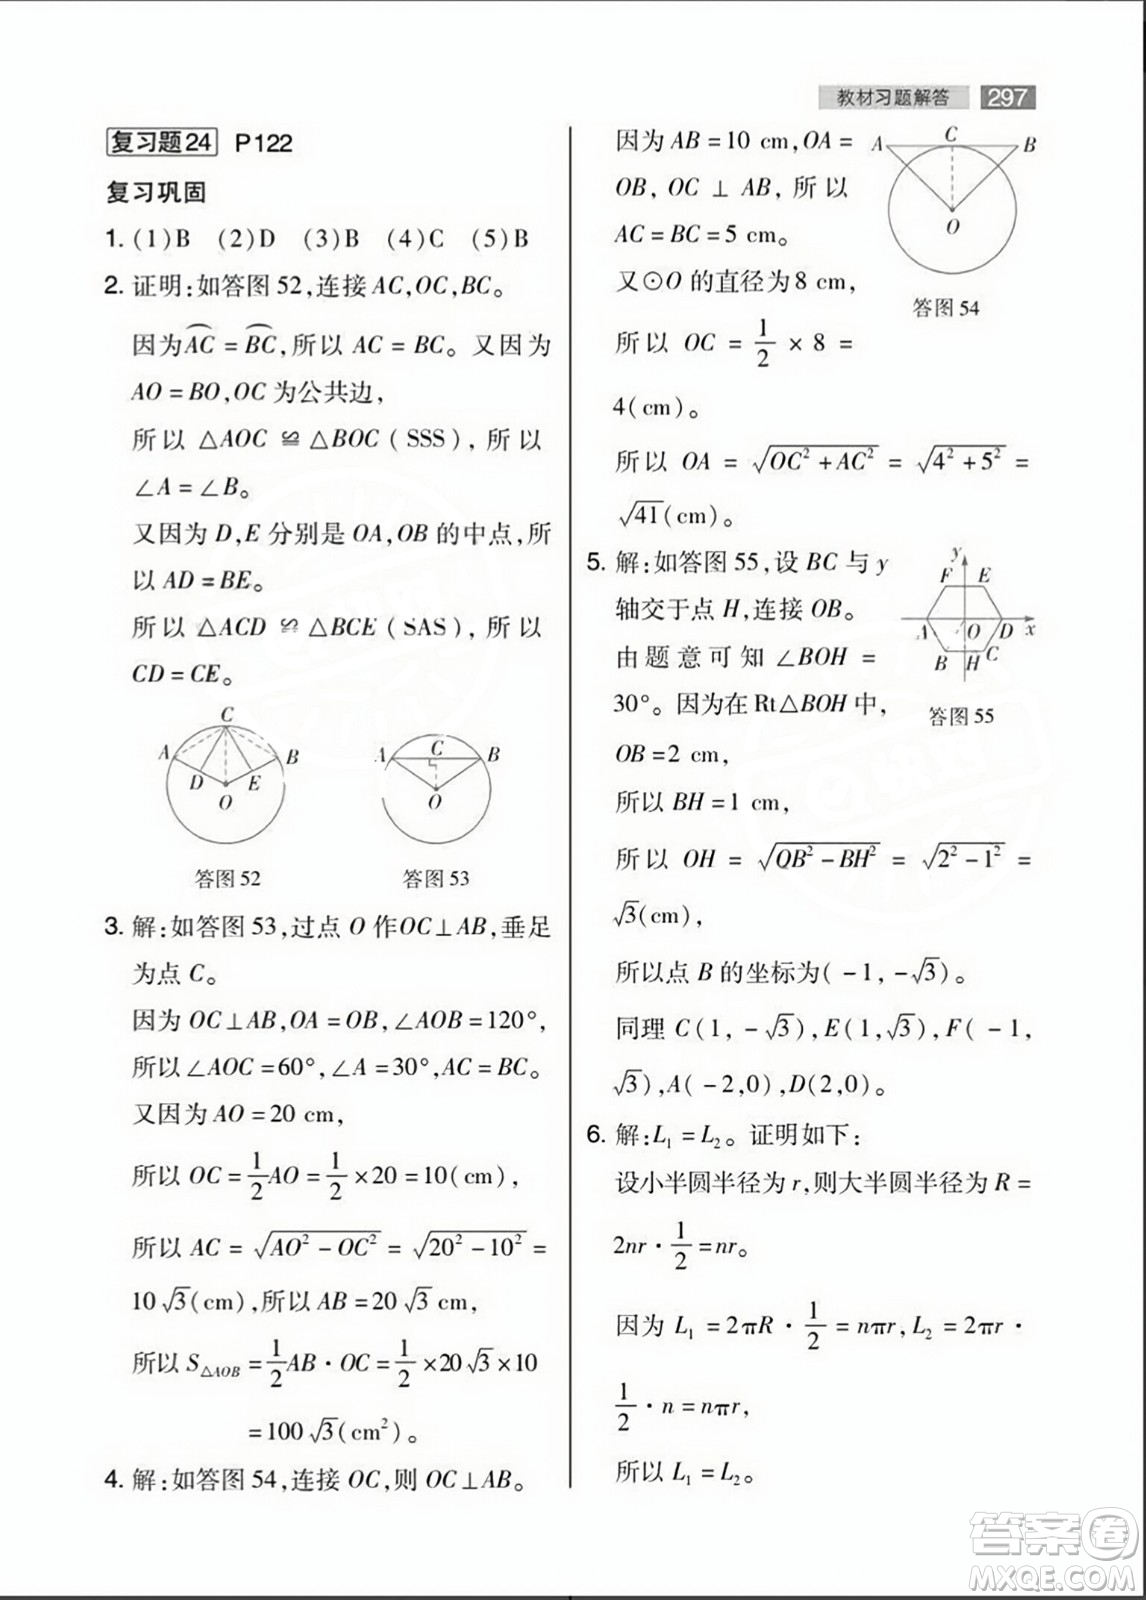 教材习题解答 297
复习题24 P122
复习巩固
1. (1)B (2)D (3)B (4)C (5)B
2. 证明:如答图 52,连接 AC,OC,BC。
因为⌒AC = ⌒BC,所以 AC = BC。又因为
AO = BO,OC 为公共边,
所以 △AOC ≌ △BOC (SSS), 所以
∠A = ∠B。
又因为 D,E 分别是 OA,OB 的中点,所
以 AD = BE。
所以 △ACD ≌ △BCE (SAS), 所以
CD = CE。
C
A B
D E
O
答图 52
C
A B
O
答图 53
3. 解:如答图 53,过点 O 作OC⊥AB,垂足
为点 C。
因为 OC⊥AB,OA = OB,∠AOB = 120°,
所以∠AOC = 60°,∠A = 30°,AC = BC。
又因为 AO = 20 cm,
所以 OC = 1/2 AO = 1/2 × 20 = 10(cm),
所以 AC = √(AO² − OC²) = √(20² − 10²) =
10√3(cm),所以 AB = 20√3 cm,
所以 S△AOB = 1/2 AB · OC = 1/2 × 20√3 × 10
= 100√3(cm²)。
4. 解:如答图 54,连接 OC,则 OC⊥AB。
因为 AB = 10 cm,OA =
OB, OC ⊥ AB, 所以
AC = BC = 5 cm。
又⊙O 的直径为 8 cm,
所以 OC = 1/2 × 8 =
4(cm)。
A C B
O
答图 54
所以 OA = √(OC² + AC²) = √(4² + 5²) =
√41(cm)。
5. 解:如答图 55,设 BC 与 y
轴交于点 H,连接 OB。
由题意可知 ∠BOH =
30°。因为在 Rt△BOH 中,
OB = 2 cm,
所以 BH = 1 cm,
y
F E
A O D x
B H C
答图 55
所以 OH = √(OB² − BH²) = √(2² − 1²) =
√3(cm),
所以点 B 的坐标为(−1, −√3)。
同理 C(1, −√3),E(1,√3),F(−1,
√3),A(−2,0),D(2,0)。
6. 解:L₁ = L₂。证明如下:
设小半圆半径为 r,则大半圆半径为 R =
2nr · 1/2 = nr。
因为 L₁ = 2πR · 1/2 = nπr,L₂ = 2πr ·
1/2 · n = nπr,
所以 L₁ = L₂。
答案卷
MXQE.COM